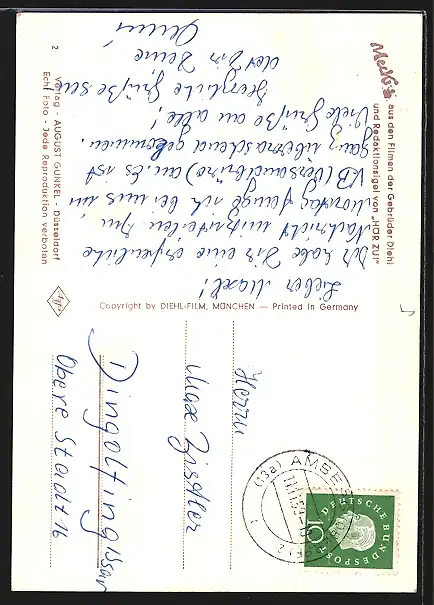 Mecki
aus den Filmen der Gebrüder Diehl
und Redaktionsigel von „HÖR ZU!"
Lieber Maxl!
Ich habe Dir eine erfreuliche
Nachricht mitzuteilen. Am
Montag fange ich bei uns im
VB (Versandbüro) an. Es ist
ganz überraschend gekommen.
Viele Grüße an alle!
Herzliche Grüße sendet Dir Deine
Verlag - AUGUST GUNKEL - Düsseldorf
Echt Foto - Jede Reproduktion verboten
2
Agfa
Copyright by DIEHL-FILM, MÜNCHEN — Printed in Germany
Herrn
Max
Dingolfing/Isar
Obere Stadt 16
(13a) AMBERG
DEUTSCHE BUNDESPOST
10